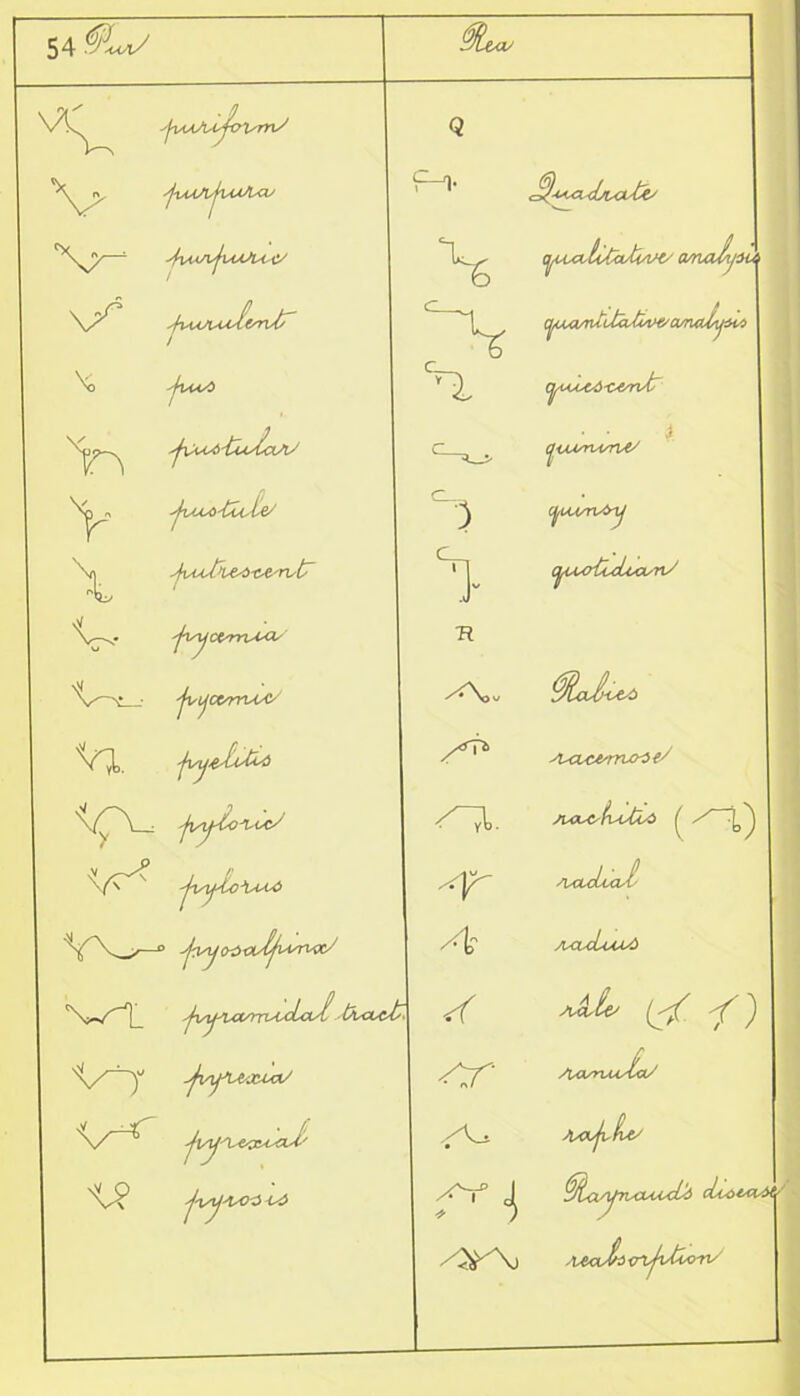 54 Pur
Rea
puriform
purpura
purpuric
purulent
pus
pustular
pustule
putrescent
pyæmia
pyæmic
pyelitis
pyloric
pylorus
pyosalpinx
pyramidal tract
pyrexia
pyrexial
pyrosis
Q
Quadrate
qualitative analysis
quantitative analysis
quiescent
quinine
quinsy
quotidian
R
Rabies
racemose
rachitis ( )
radial
radius
râle ( )
ranula
raphe
Raynaud's disease
reabsorption